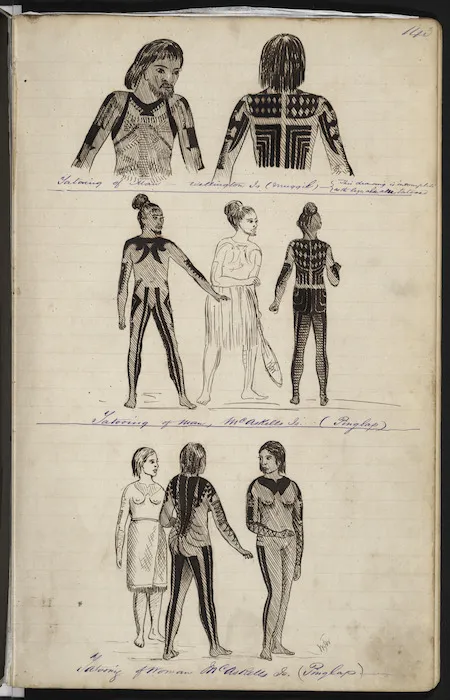 143
Tatooing of Man Wellington Is (Muggil)
This drawing is incomplete
Tatooing of Man, McAskells Is. (Pinglap)
Tatooing of Woman McAskells Is. (Pinglap)